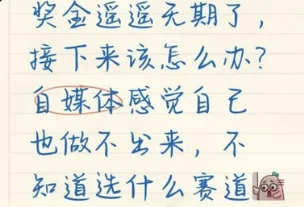 奖金遥遥无期了，
接下来该怎么办？
自媒体感觉自己
也做不出来，不
知道选什么赛道